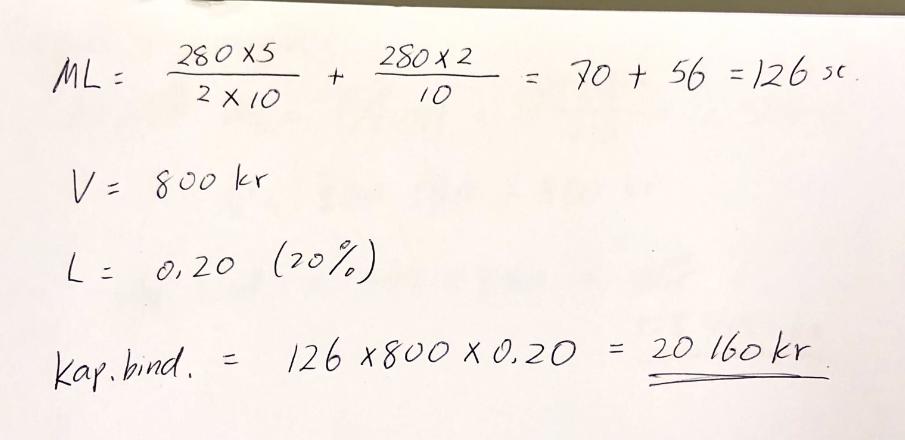 ML = 280 x 5 / 2 x 10 + 280 x 2 / 10 = 70 + 56 = 126 st.
V = 800 kr
L = 0,20 (20%)
Kap.bind. = 126 x 800 x 0.20 = 20 160 kr